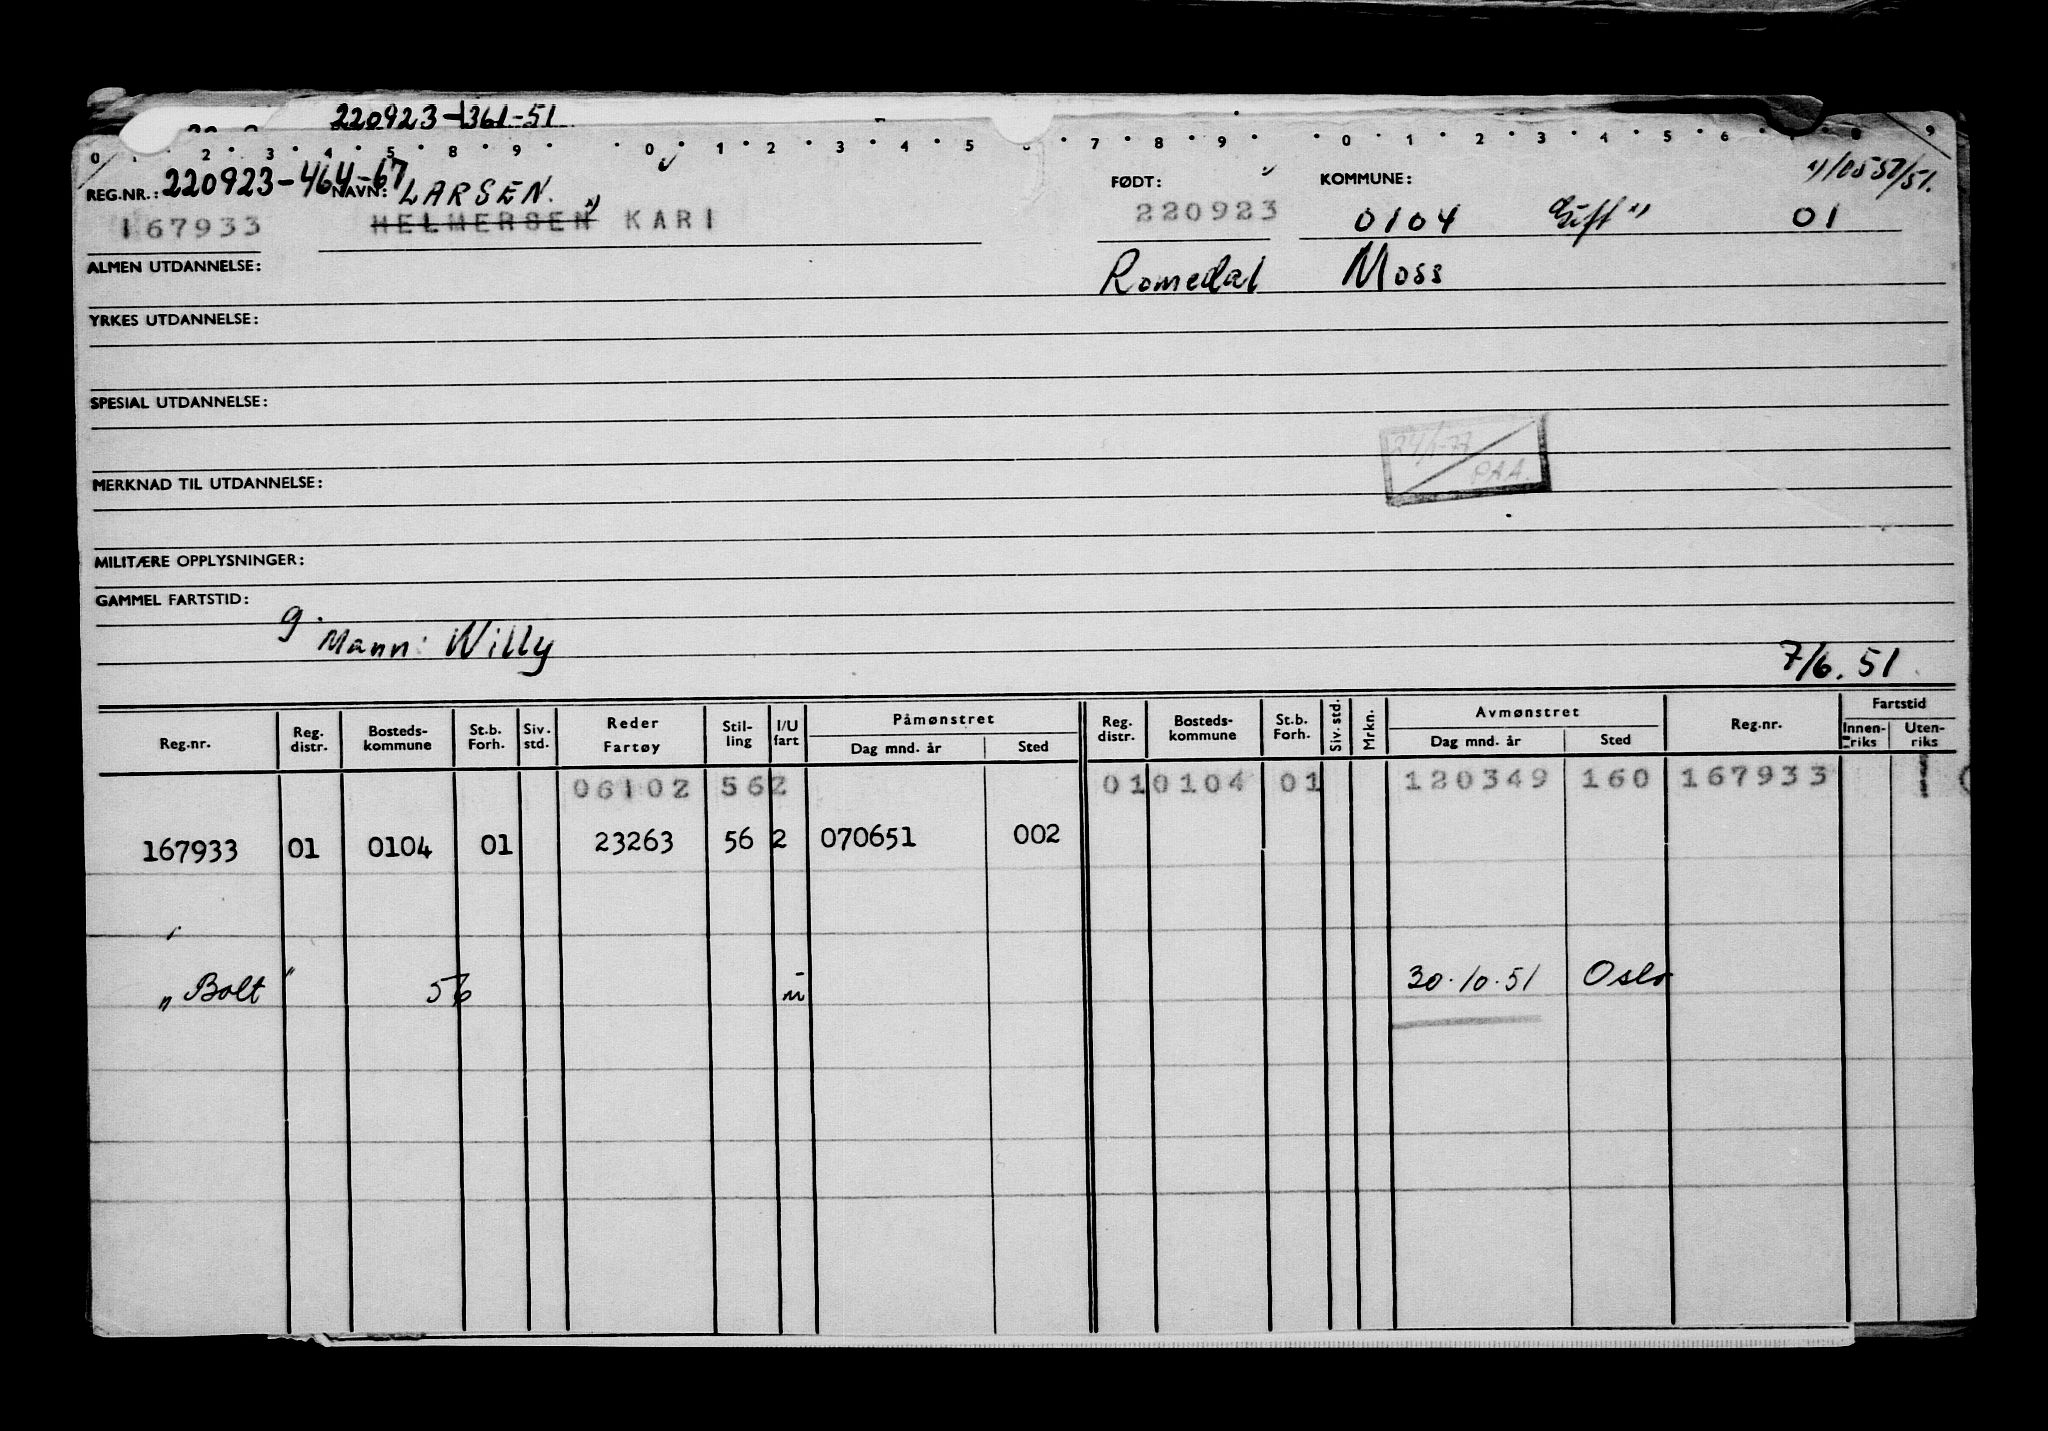 220923-1361-51
0 1 2 3 4 5 8 9 0 1 2 3 4 5 6 7 8 9 0 1 2 3 4 5 6 8 9
REG.NR.: 220923-464-67 NAVN: LARSEN. FØDT: KOMMUNE: 1) 10557/51.
167933 HELMERSEN 1) KARI 220923 0104 Gift 1) 01
ALMEN UTDANNELSE: Romedal Moss
YRKES UTDANNELSE:
SPESIAL UTDANNELSE:
24/1-77
PAA.
MERKNAD TIL UTDANNELSE:
MILITÆRE OPPLYSNINGER:
GAMMEL FARTSTID:
g.
Mann: Willy 7/6.51
Reg.nr. Reg. distr. Bosteds-kommune St.b. Forh. Siv. std. Reder Fartøy Stil-ling I/U fart Påmønstret Dag mnd. år Sted Reg. distr. Bosteds-kommune St.b. Forh. Siv. std. Mrkn. Avmønstret Dag mnd. år Sted Reg.nr. Fartstid Innen-riks Uten-riks
06102 562 01 0104 01 120349 160 167933 1
167933 01 0104 01 23263 56 2 070651 002
"Bolt" 56 u 30.10.51 Oslo